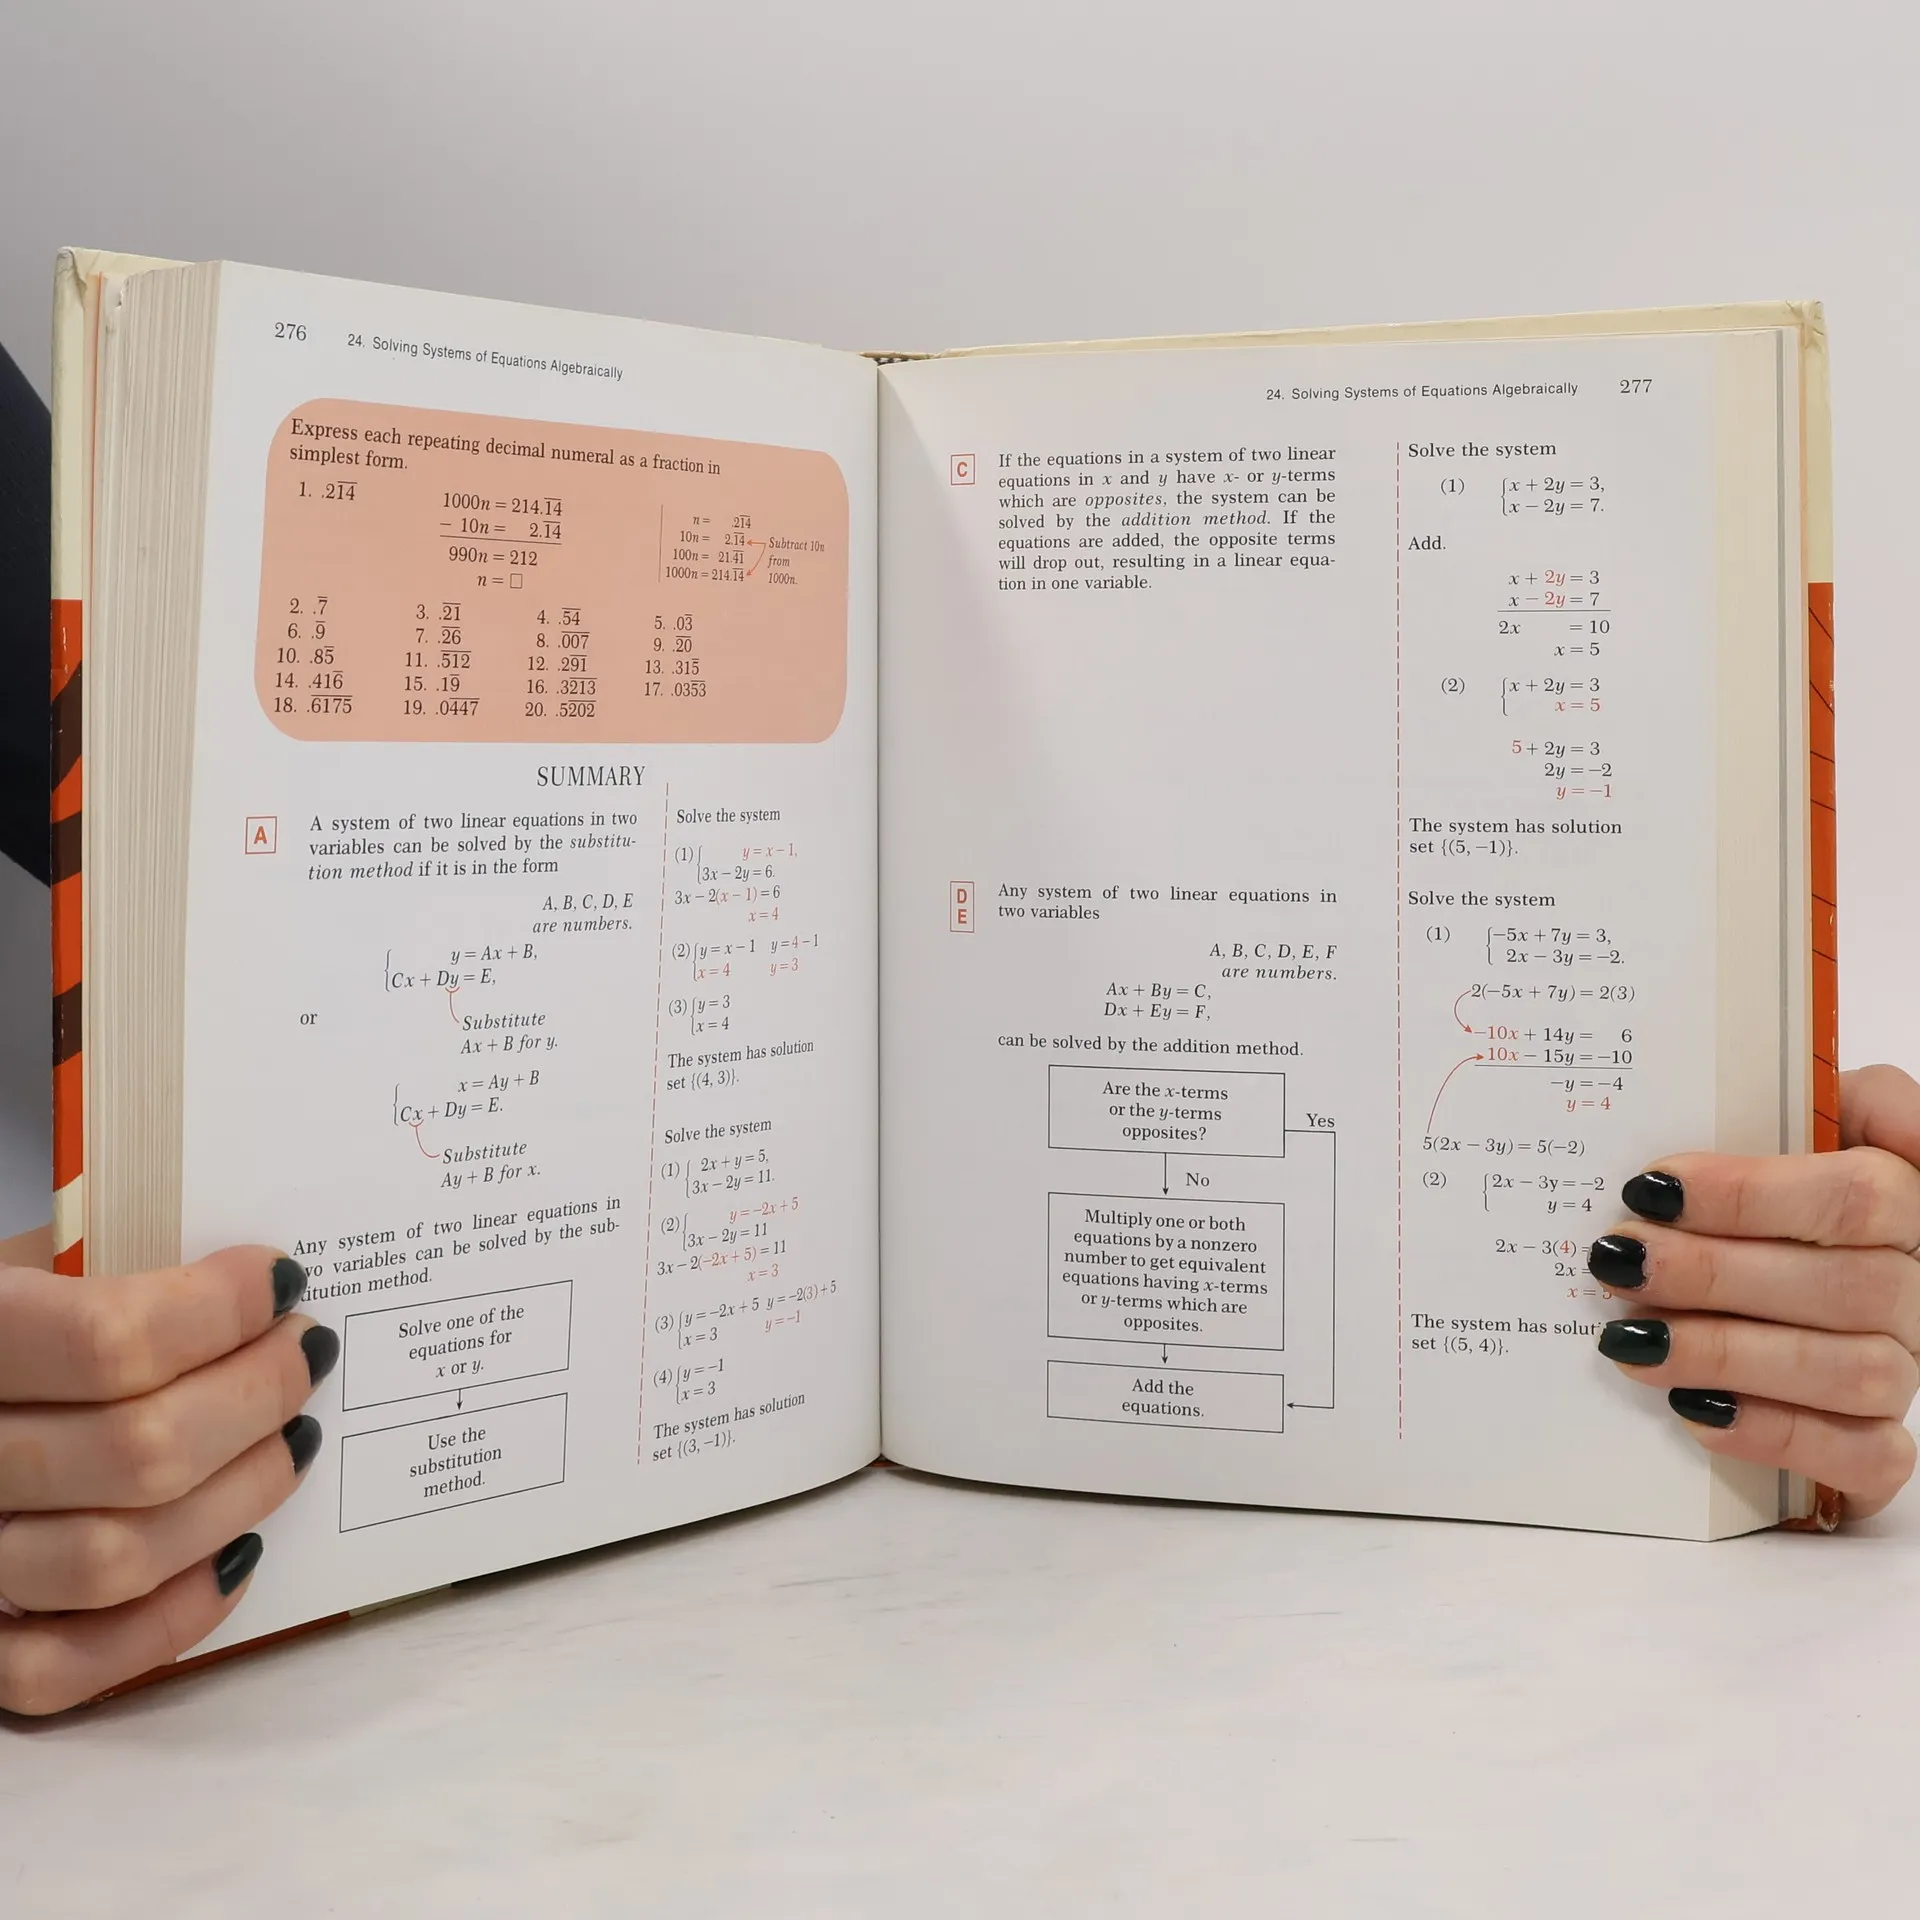 276 24. Solving Systems of Equations Algebraically
Express each repeating decimal numeral as a fraction in
simplest form.
1. .21̅4̅
1000n = 214.1̅4̅
− 10n = 2.1̅4̅
990n = 212
n = □
n = .21̅4̅
10n = 2.1̅4̅
100n = 21.4̅1̅
1000n = 214.1̅4̅
Subtract 10n
from
1000n.
2. .7̅ 3. .2̅1̅ 4. .5̅4̅ 5. .03̅
6. .9̅ 7. .2̅6̅ 8. .0̅0̅7̅ 9. .2̅0̅
10. .85̅ 11. .5̅1̅2̅ 12. .29̅1̅ 13. .315̅
14. .416̅ 15. .19̅ 16. .32̅1̅3̅ 17. .035̅3̅
18. .6̅1̅7̅5̅ 19. .04̅4̅7̅ 20. .52̅0̅2̅
SUMMARY
A
A system of two linear equations in two
variables can be solved by the substitu-
tion method if it is in the form
A, B, C, D, E
are numbers.
y = Ax + B,
Cx + Dy = E,
Substitute
Ax + B for y.
or
x = Ay + B
Cx + Dy = E.
Substitute
Ay + B for x.
Any system of two linear equations in
variables can be solved by the sub-
method.
Solve one of the
equations for
x or y.
Use the
substitution
method.
Solve the system
(1) { y = x − 1,
3x − 2y = 6.
3x − 2(x − 1) = 6
x = 4
(2) { y = x − 1 y = 4 − 1
x = 4 y = 3
(3) { y = 3
x = 4
The system has solution
set {(4, 3)}.
Solve the system
(1) { 2x + y = 5,
3x − 2y = 11.
(2) { y = −2x + 5
3x − 2y = 11
3x − 2(−2x + 5) = 11
x = 3
(3) { y = −2x + 5 y = −2(3) + 5
x = 3 y = −1
(4) { y = −1
x = 3
The system has solution
set {(3, −1)}.
24. Solving Systems of Equations Algebraically 277
C
If the equations in a system of two linear
equations in x and y have x- or y-terms
which are opposites, the system can be
solved by the addition method. If the
equations are added, the opposite terms
will drop out, resulting in a linear equa-
tion in one variable.
Solve the system
(1) { x + 2y = 3,
x − 2y = 7.
Add.
x + 2y = 3
x − 2y = 7
2x = 10
x = 5
(2) { x + 2y = 3
x = 5
5 + 2y = 3
2y = −2
y = −1
The system has solution
set {(5, −1)}.
D
E
Any system of two linear equations in
two variables
A, B, C, D, E, F
are numbers.
Ax + By = C,
Dx + Ey = F,
can be solved by the addition method.
Are the x-terms
or the y-terms
opposites?
Yes
No
Multiply one or both
equations by a nonzero
number to get equivalent
equations having x-terms
or y-terms which are
opposites.
Add the
equations.
Solve the system
(1) { −5x + 7y = 3,
2x − 3y = −2.
2(−5x + 7y) = 2(3)
−10x + 14y = 6
10x − 15y = −10
−y = −4
y = 4
5(2x − 3y) = 5(−2)
(2) { 2x − 3y = −2
y = 4
2x − 3(4) =
2x =
x = 5
The system has
set {(5, 4)}.